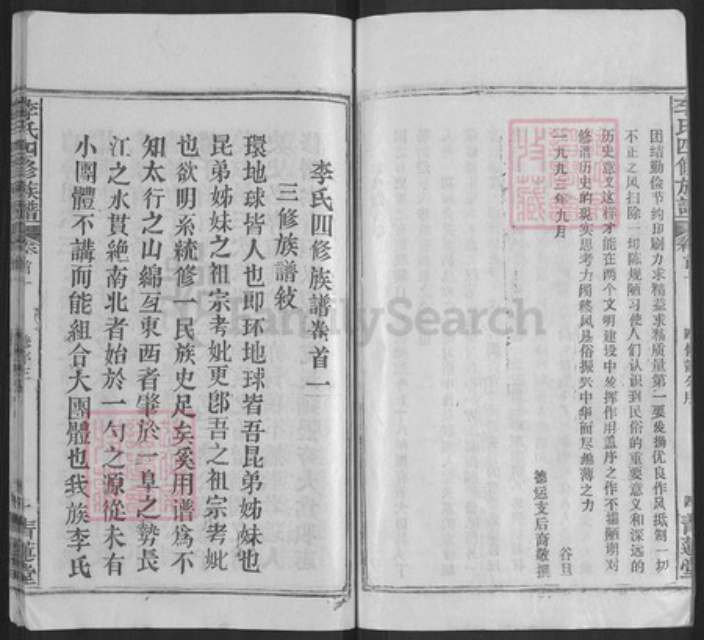 李氏四修族譜
卷首一
青蓮堂
团结勤俭节约印刷力求精益求精质量第一要发扬优良作风抵制一切
不正之风扫除一切陈规陋习使人们认识到民俗的重要意义和深远的
历史意义这样才能在两个文明建设中发挥作用盖序之作不揣陋谢对
修谱历史的现实思考力图移风易俗振兴中华而尽绵薄之力
一九九三年九月
谷旦
德运支后裔敬撰
FamilySearch
李氏四修族譜卷首一
三修族譜敘
環地球皆人也即环地球皆吾昆弟姊妹也
昆弟姊妹之祖宗考妣更即吾之祖宗考妣
也欲明系統修一民族史足矣奚用谱為不
知太行之山綿亙東西者肇於一阜之勢長
江之水貫絶南北者始於一勺之源從未有
小團體不講而能組合大團體也我族李氏
李氏四修族譜
卷首一
青蓮堂